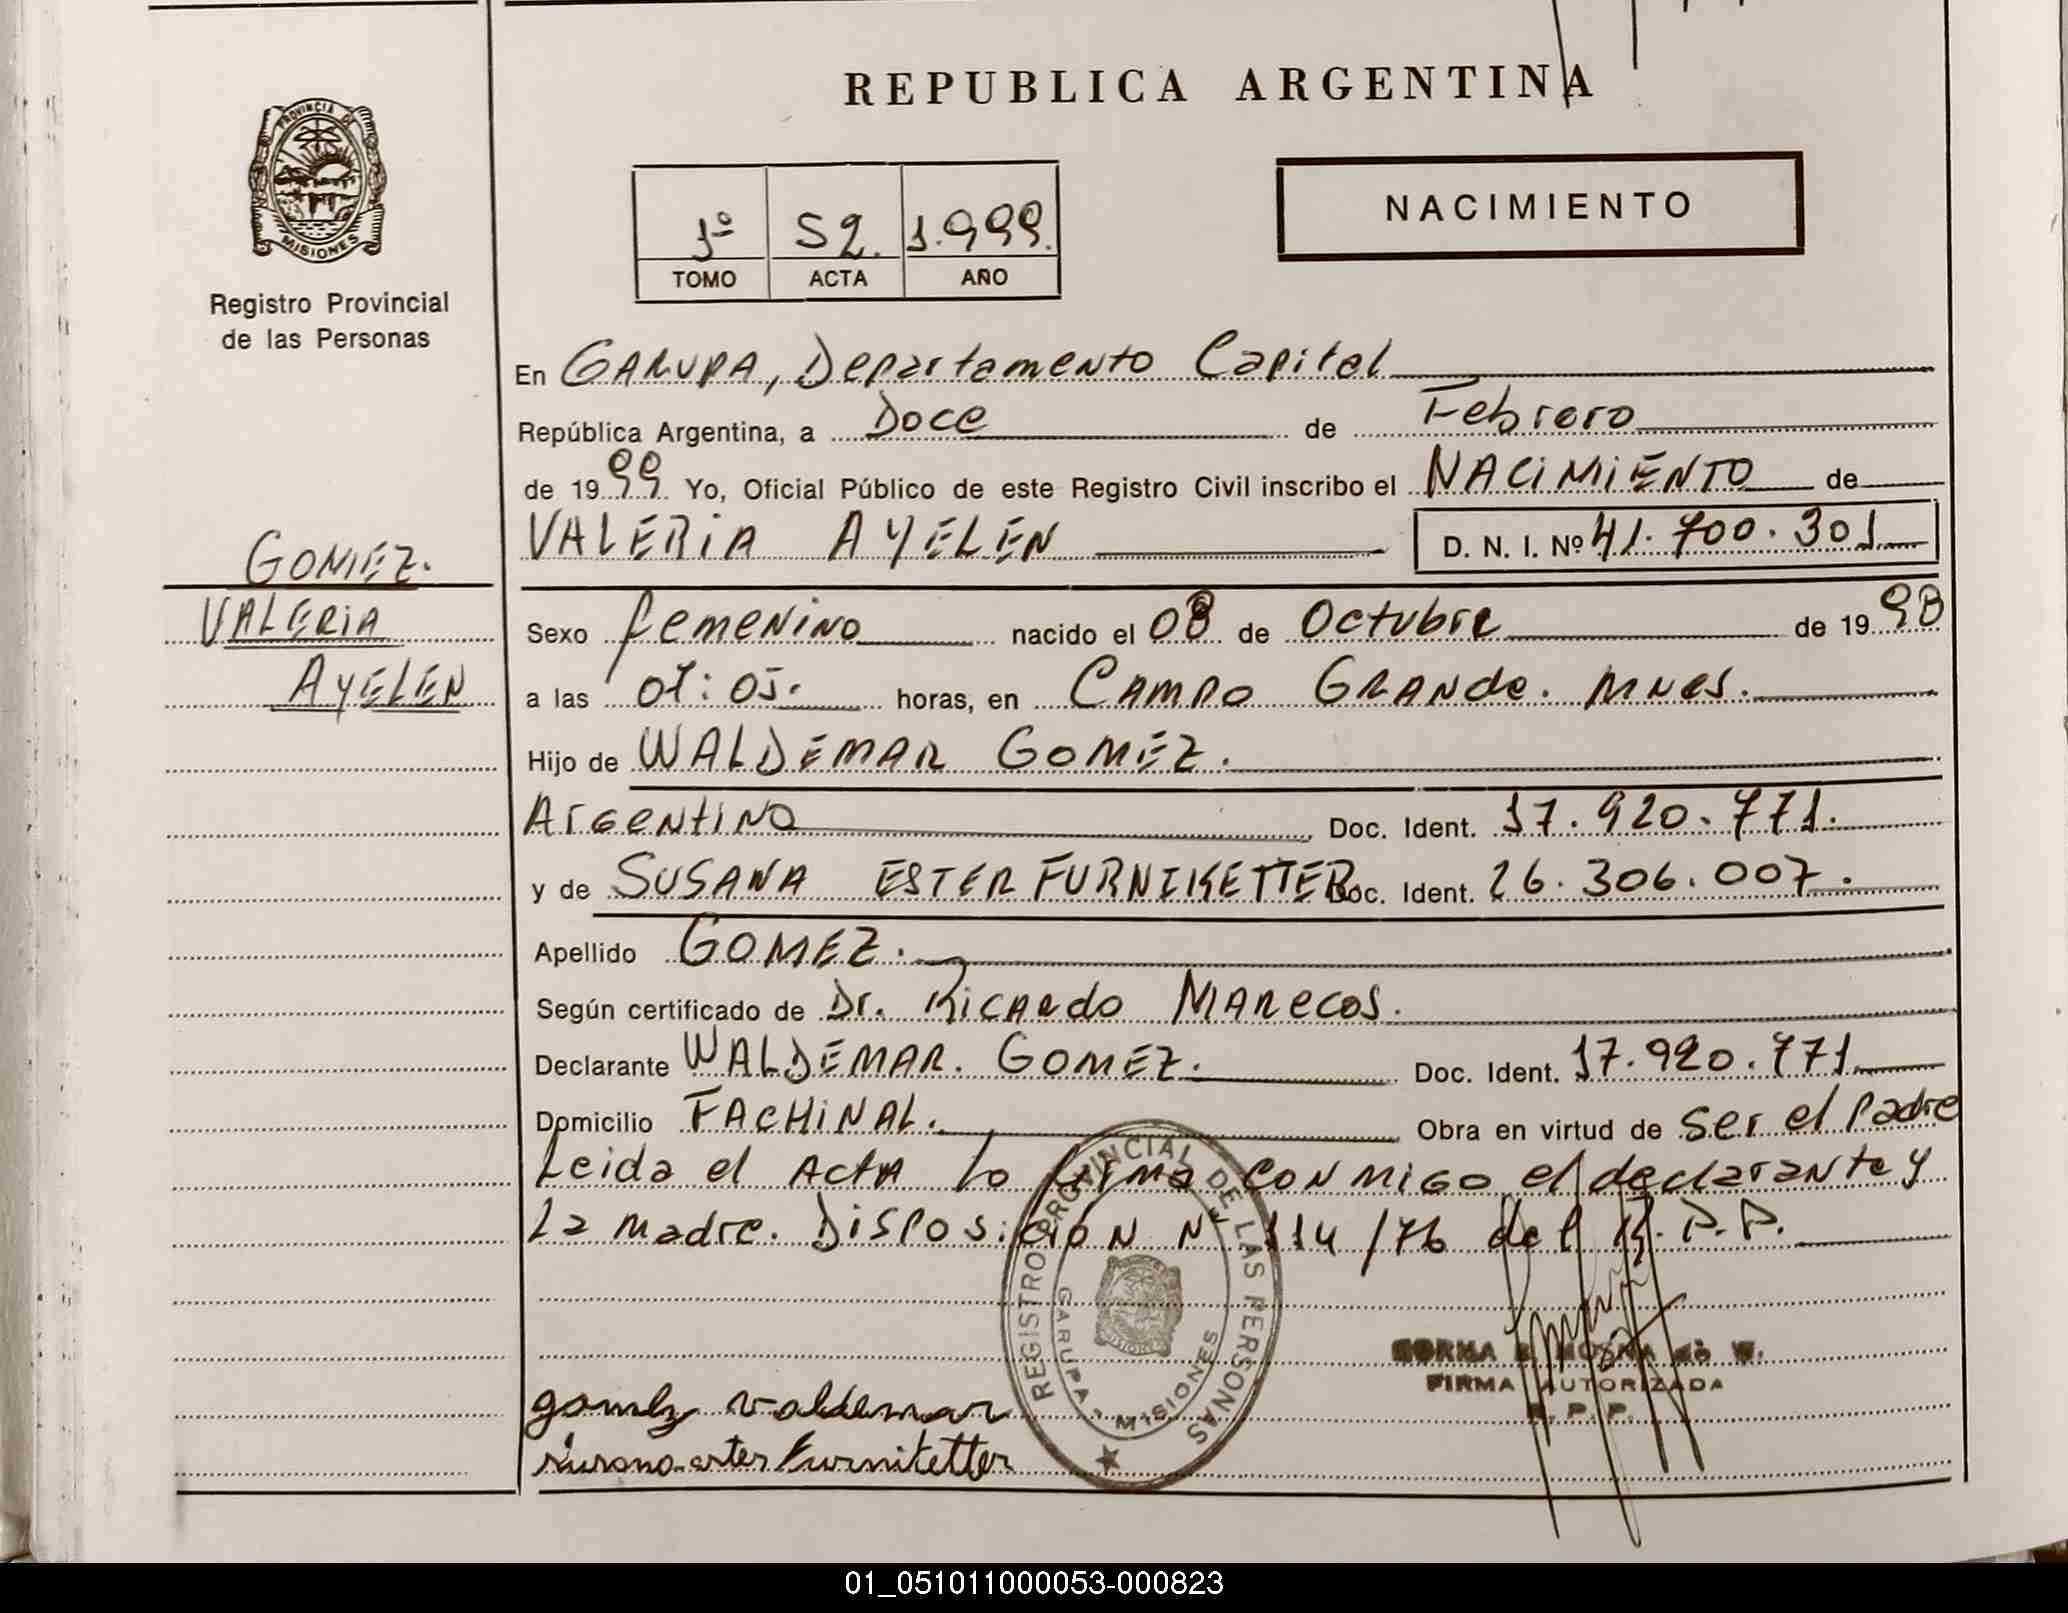 REPUBLICA ARGENTINA
PROVINCIA DE
MISIONES
Registro Provincial
de las Personas
1º 52. 1.999.
TOMO ACTA AÑO
NACIMIENTO
En GARUPA, Departamento Capital
República Argentina, a Doce de Febrero
de 1999 Yo, Oficial Público de este Registro Civil inscribo el NACIMIENTO de
VALERIA AYELEN D. N. I. Nº 41.700.301
GOMEZ.
VALERIA
AYELEN
Sexo femenino nacido el 08 de Octubre de 1998
a las 07:05. horas, en CAMPO GRANde. MNES.
Hijo de WALDEMAR GOMEZ.
Argentino Doc. Ident. 17.920.771.
y de SUSANA ESTER FURNIKETTER Doc. Ident. 26.306.007.
Apellido GOMEZ.
Según certificado de Dr. Ricardo MARECOS.
Declarante WALDEMAR. GOMEZ. Doc. Ident. 17.920.771
Domicilio FACHINAL. Obra en virtud de ser el padre
Leida el ACTA lo firma CONMIGO el declarante y
La madre. DISPOSICIÓN Nº 114/76 del R.P.P.
REGISTRO PROVINCIAL DE LAS PERSONAS
GARUPA - MISIONES
FIRMA AUTORIZADA
R. P. P.
gomez valdemar
susana ester Furniketter
01_051011000053-000823